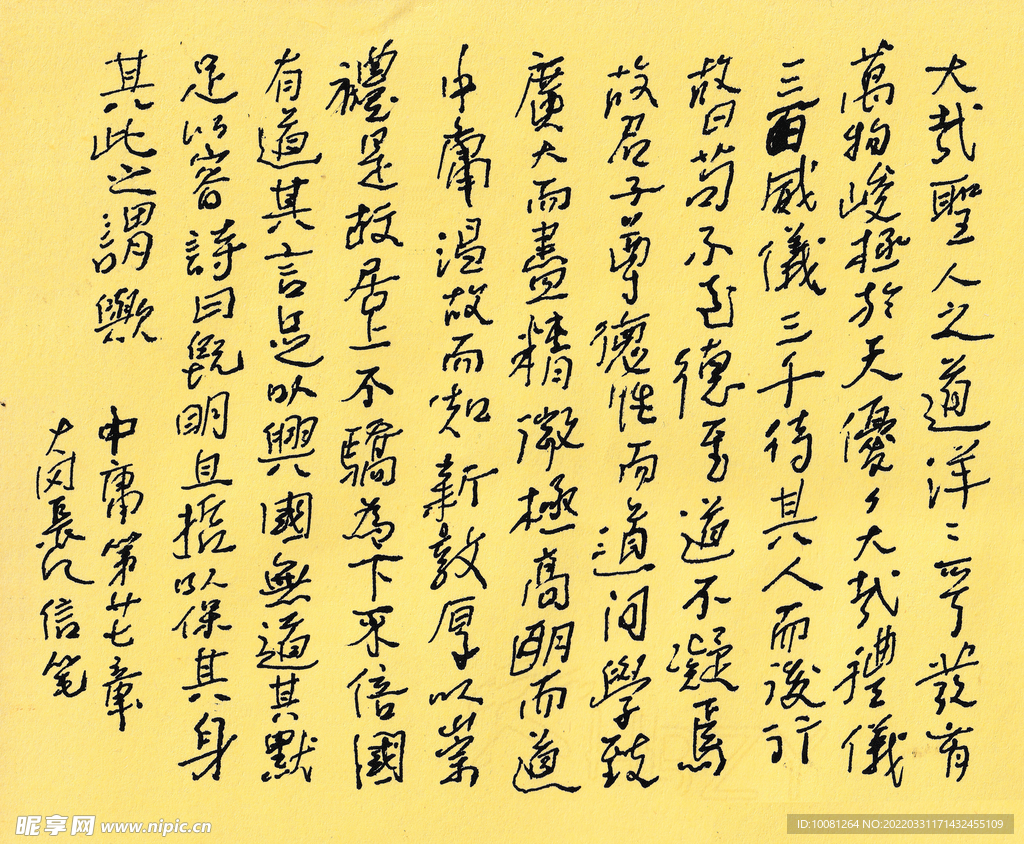 大哉聖人之道洋々乎發育
萬物峻極於天優々大哉禮儀
三百威儀三千待其人而後行
故曰苟不至德至道不凝焉
故君子尊德性而道问學致
廣大而盡精微極高明而道
中庸温故而知新敦厚以崇
禮是故居上不驕為下不倍國
有道其言足以興國無道其默
足以容詩曰既明且哲以保其身
其此之謂歟
中庸第廿七章
大長江信笔
昵享网 www.nipic.cn
ID:10081264 NO:20220331171432455109